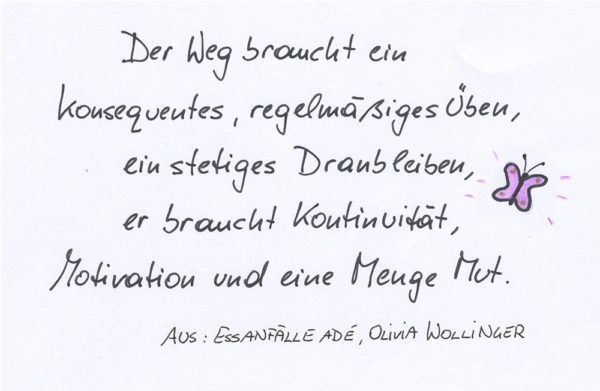 Der Weg braucht ein
konsequentes, regelmäßiges Üben,
ein stetiges Dranbleiben,
er braucht Kontinuität,
Motivation und eine Menge Mut.
AUS: ESSANFÄLLE ADÉ, OLIVIA WOLLINGER